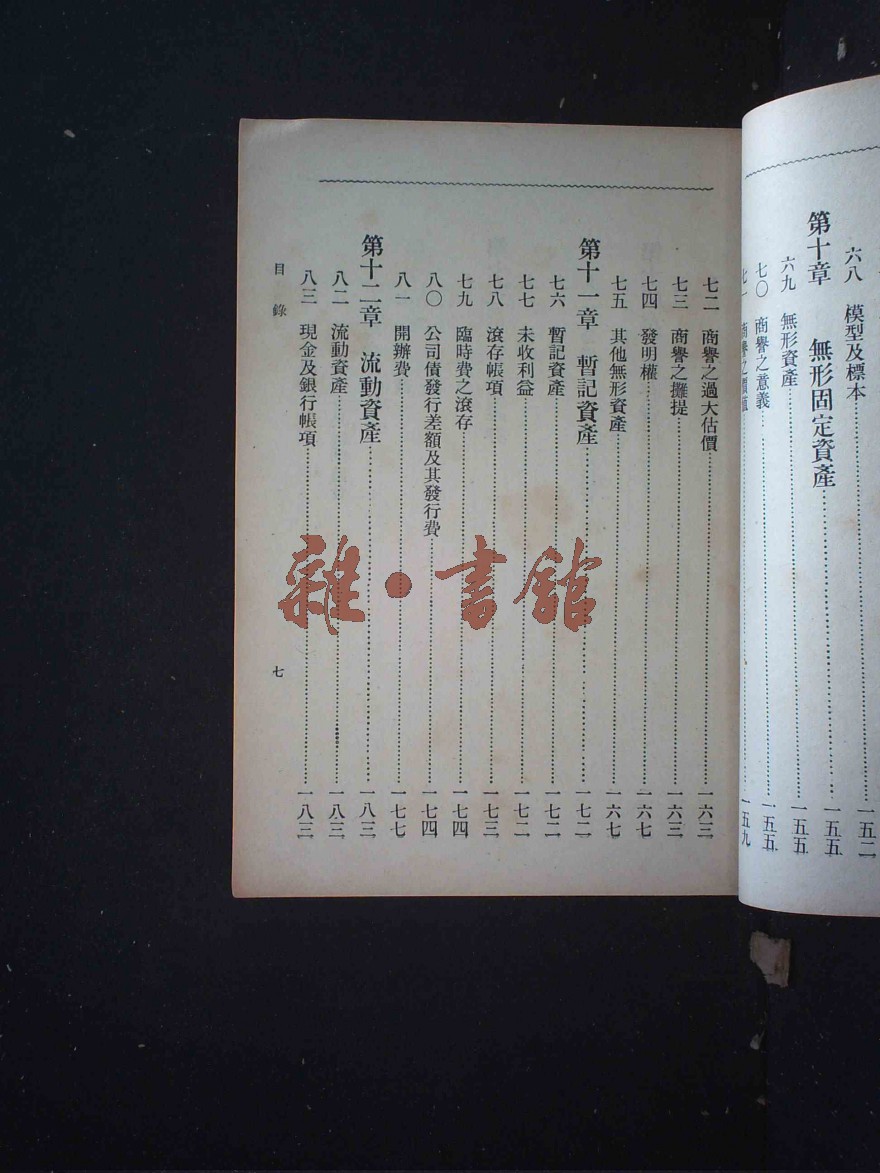 六八 模型及標本……一五二
第十章 無形固定資產……一五五
六九 無形資產……一五五
七〇 商譽之意義……一五五
七一 商譽之價值……一五九
七二 商譽之過大估價……一六三
七三 商譽之攤提……一六三
七四 發明權……一六七
七五 其他無形資產……一六七
第十一章 暫記資產……一七二
七六 暫記資產……一七二
七七 未收利益……一七二
七八 滾存帳項……一七三
七九 臨時費之滾存……一七四
八〇 公司債發行差額及其發行費……一七四
八一 開辦費……一七七
第十二章 流動資產……一八三
八二 流動資產……一八三
八三 現金及銀行帳項……一八三
目錄
七
雜·書館